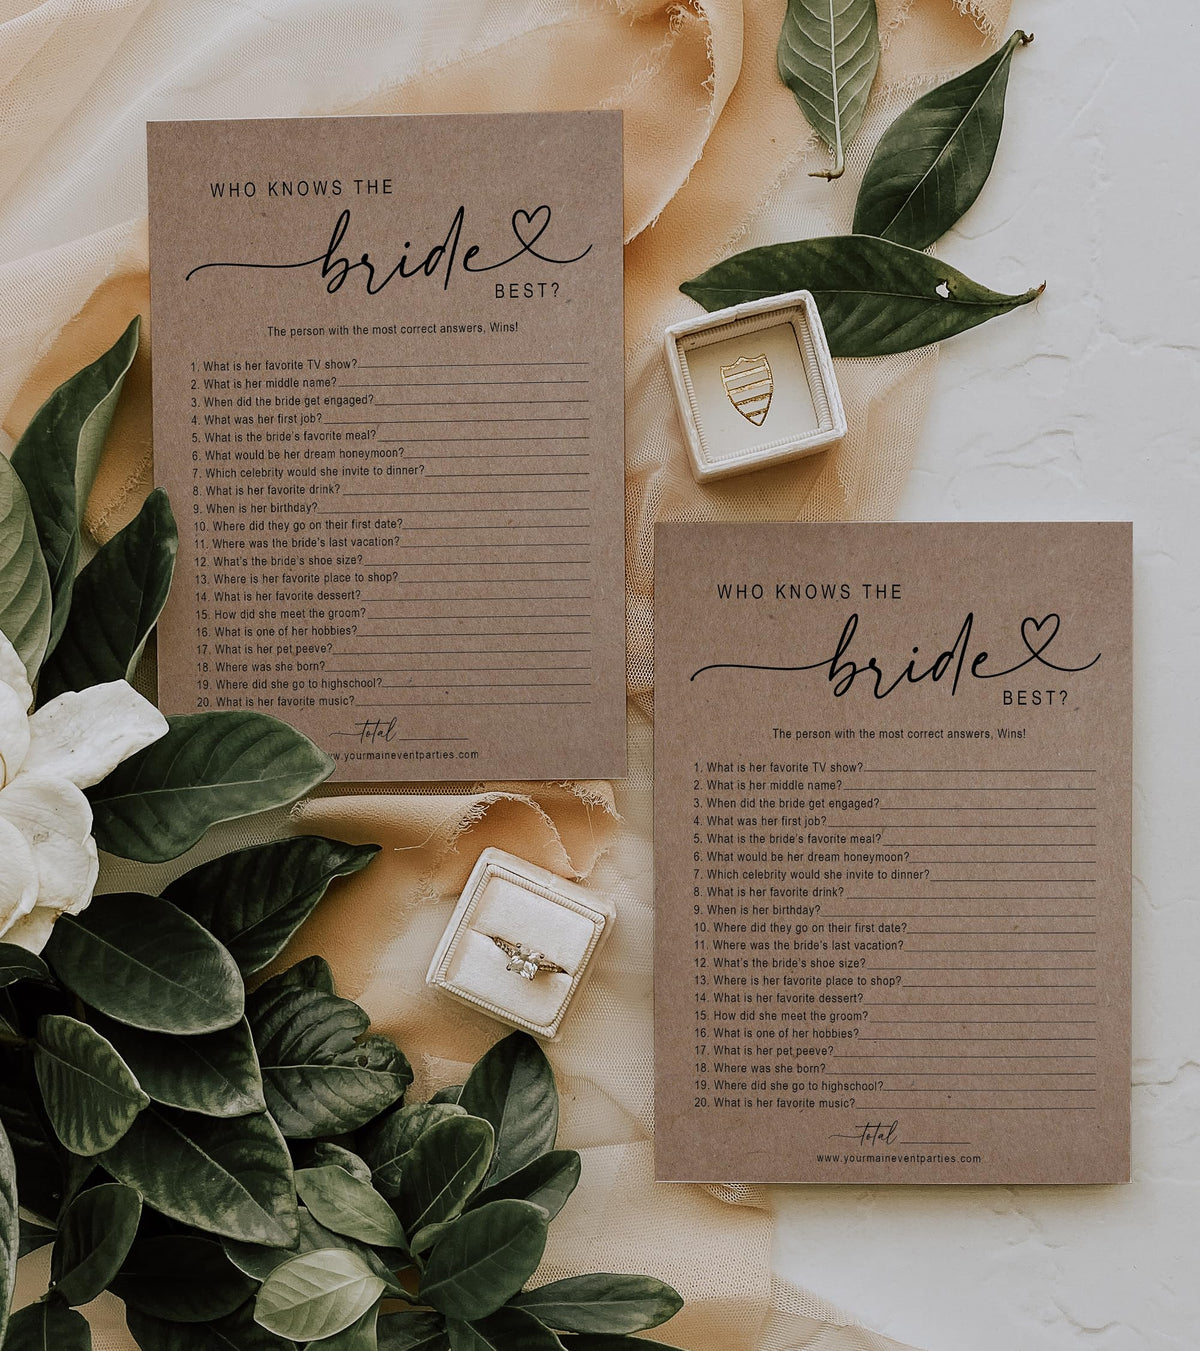 WHO KNOWS THE
bride
BEST?
The person with the most correct answers, Wins!
1. What is her favorite TV show?
2. What is her middle name?
3. When did the bride get engaged?
4. What was her first job?
5. What is the bride's favorite meal?
6. What would be her dream honeymoon?
7. Which celebrity would she invite to dinner?
8. What is her favorite drink?
9. When is her birthday?
10. Where did they go on their first date?
11. Where was the bride's last vacation?
12. What's the bride's shoe size?
13. Where is her favorite place to shop?
14. What is her favorite dessert?
15. How did she meet the groom?
16. What is one of her hobbies?
17. What is her pet peeve?
18. Where was she born?
19. Where did she go to highschool?
20. What is her favorite music?
total
w.yourmaineventparties.com
WHO KNOWS THE
bride
BEST?
The person with the most correct answers, Wins!
1. What is her favorite TV show?
2. What is her middle name?
3. When did the bride get engaged?
4. What was her first job?
5. What is the bride's favorite meal?
6. What would be her dream honeymoon?
7. Which celebrity would she invite to dinner?
8. What is her favorite drink?
9. When is her birthday?
10. Where did they go on their first date?
11. Where was the bride's last vacation?
12. What's the bride's shoe size?
13. Where is her favorite place to shop?
14. What is her favorite dessert?
15. How did she meet the groom?
16. What is one of her hobbies?
17. What is her pet peeve?
18. Where was she born?
19. Where did she go to highschool?
20. What is her favorite music?
total
www.yourmaineventparties.com